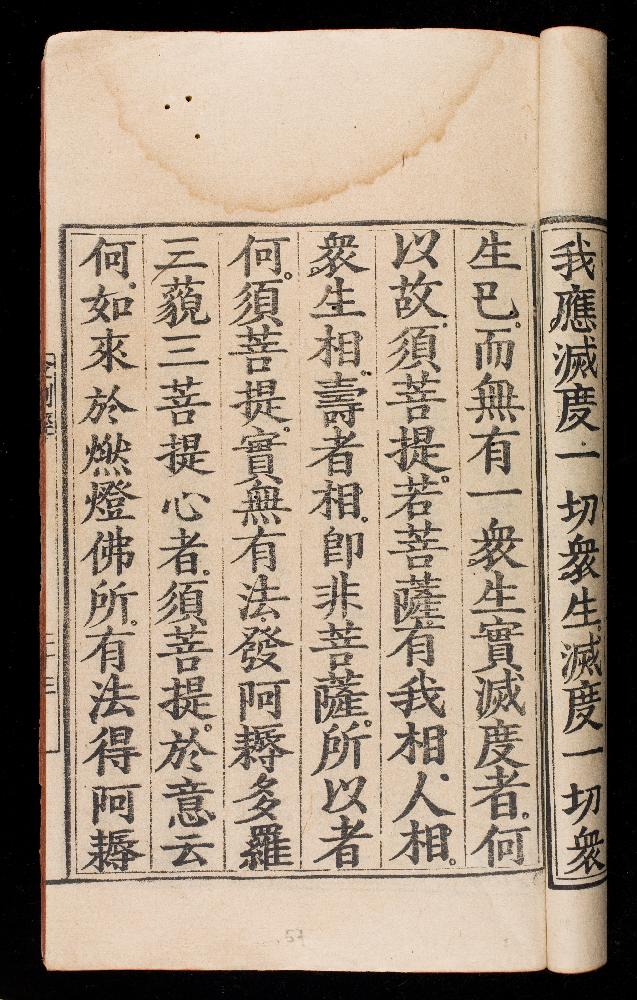 我應滅度一切衆生滅度一切衆
生巳。而無有一衆生實滅度者。何
以故。須菩提。若菩薩有我相人相。
衆生相。壽者相。卽非菩薩。所以者
何。須菩提。實無有法。發阿耨多羅
三藐三菩提心者。須菩提。於意云
何。如來於燃燈佛所。有法得阿耨
57